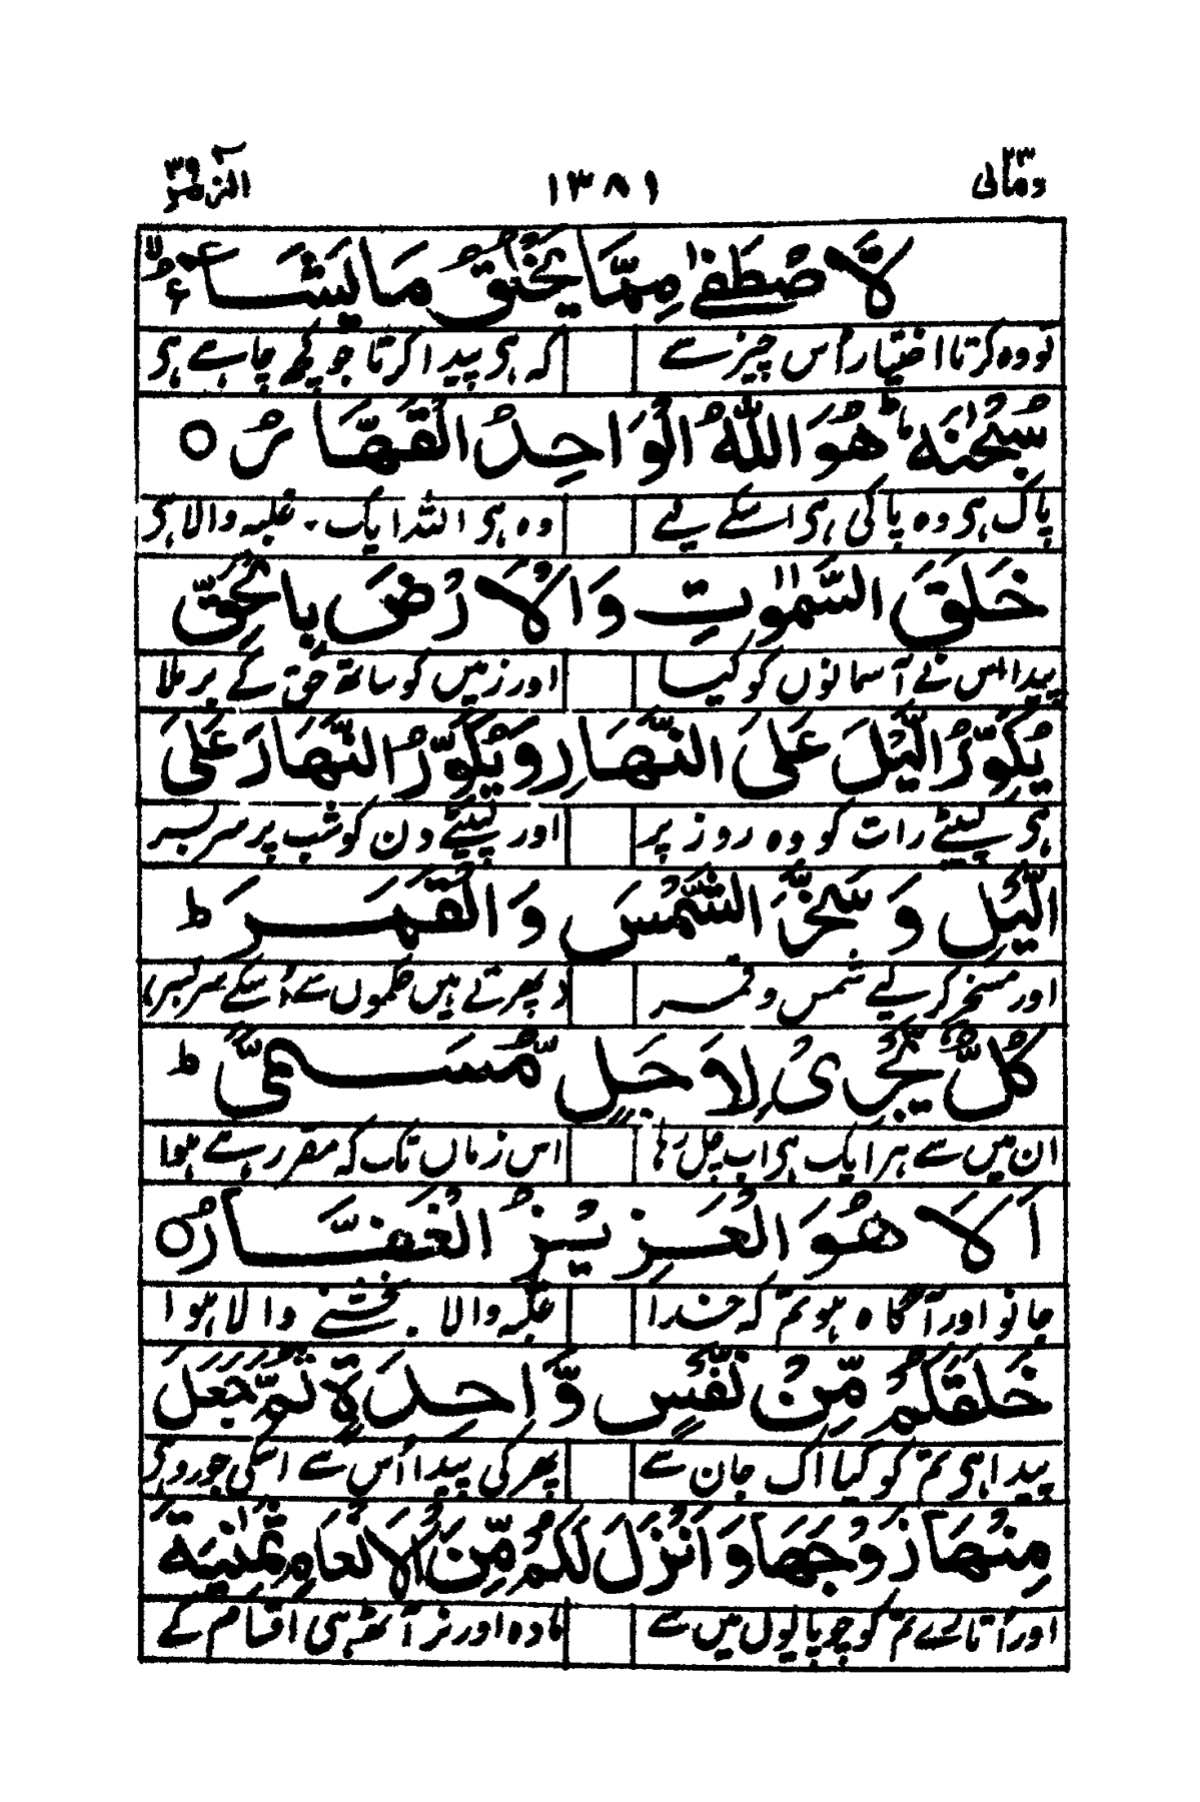 ومالی ٢٣ ١٣٨١ الزمر ٣٩
لَّاصْطَفٰی مِمَّا یَخْلُقُ مَا یَشَآءُ ۙ
تو وہ کرتا اختیار اُس چیز سے کہ ہی پیدا کرتا جو کچھ چاہے ہی
سُبْحٰنَہٗ ؕ ھُوَ اللّٰہُ الْوَاحِدُ الْقَھَّارُ ○
پاک ہی وہ پاکی ہی اسکے لیے وہ ہی اللہ ایک ۔ غلبہ والا ہی
خَلَقَ السَّمٰوٰتِ وَالْاَرْضَ بِالْحَقِّ
پیدا اس نے آسمانوں کو کیا اور زمیں کو ساتھ حق کے برملا
یُکَوِّرُ الَّیْلَ عَلَی النَّھَارِ وَیُکَوِّرُ النَّھَارَ عَلَی
ہی لپیٹے رات کو وہ روز پر اور لپیٹے دن کو شب پر سربسر
الَّیْلِ وَ سَخَّرَ الشَّمْسَ وَ الْقَمَرَ ؕ
اور مسخر کر لیے شمس و قمر پھرتے ہیں حکموں سے اُسکے سربسر
کُلٌّ یَّجْرِیْ لِاَجَلٍ مُّسَمًّی ؕ
ان میں سے ہر ایک ہی اب چل رہا اس زماں تک کہ مقرر ہے ہوا
اَلَا ھُوَ الْعَزِیْزُ الْغَفَّارُ ○
جانو اور آگاہ ہو تم کہ خدا غلبہ والا ۔ بخشنے والا ہوا
خَلَقَکُمْ مِّنْ نَّفْسٍ وَّاحِدَۃٍ ثُمَّ جَعَلَ
پیدا ہی تم کو کیا اک جان سے پھر کی پیدا اُس سے اسکی جورو ہی
مِنْھَا زَوْجَھَا وَاَنْزَلَ لَکُمْ مِّنَ الْاَنْعَامِ ثَمٰنِیَۃَ
اور اُتارے تم کو چوپایوں میں سے مادہ اور نر آٹھ ہی اقسام کے